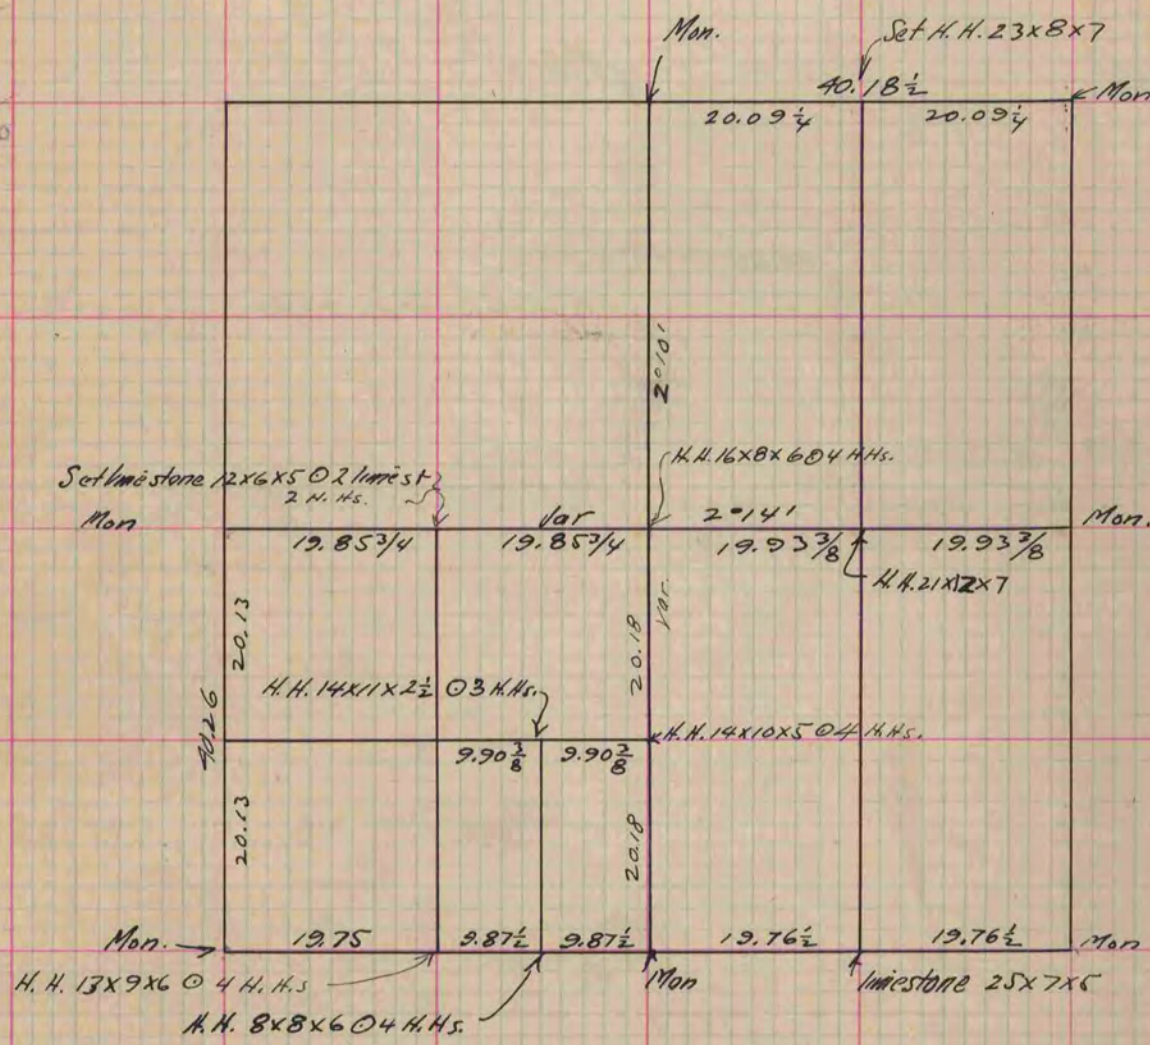 Mon.
Set H.H. 23x8x7
40.18½
Mon
20.09¼ 20.09¼
2°10'
H.H. 16x8x6 ⊙ 4 H.Hs.
Set limestone 12x6x5 ⊙ 2 limest
2 H.Hs.
Mon
Var 2°14'
Mon.
19.85 3/4 19.85 3/4 19.93 3/8 19.93 3/8
H.H. 21x12x7
Var.
20.13
20.18
H.H. 14x11x2½ ⊙ 3 H.Hs.
40.26
H.H. 14x10x5 ⊙ 4 H.Hs.
9.90 3/8 9.90 3/8
20.13
20.18
Mon.
19.75 9.87½ 9.87½ 19.76½ 19.76½
Mon
H.H. 13x9x6 ⊙ 4 H.H.s
Mon
limestone 25x7x5
H.H. 8x8x6 ⊙ 4 H.Hs.